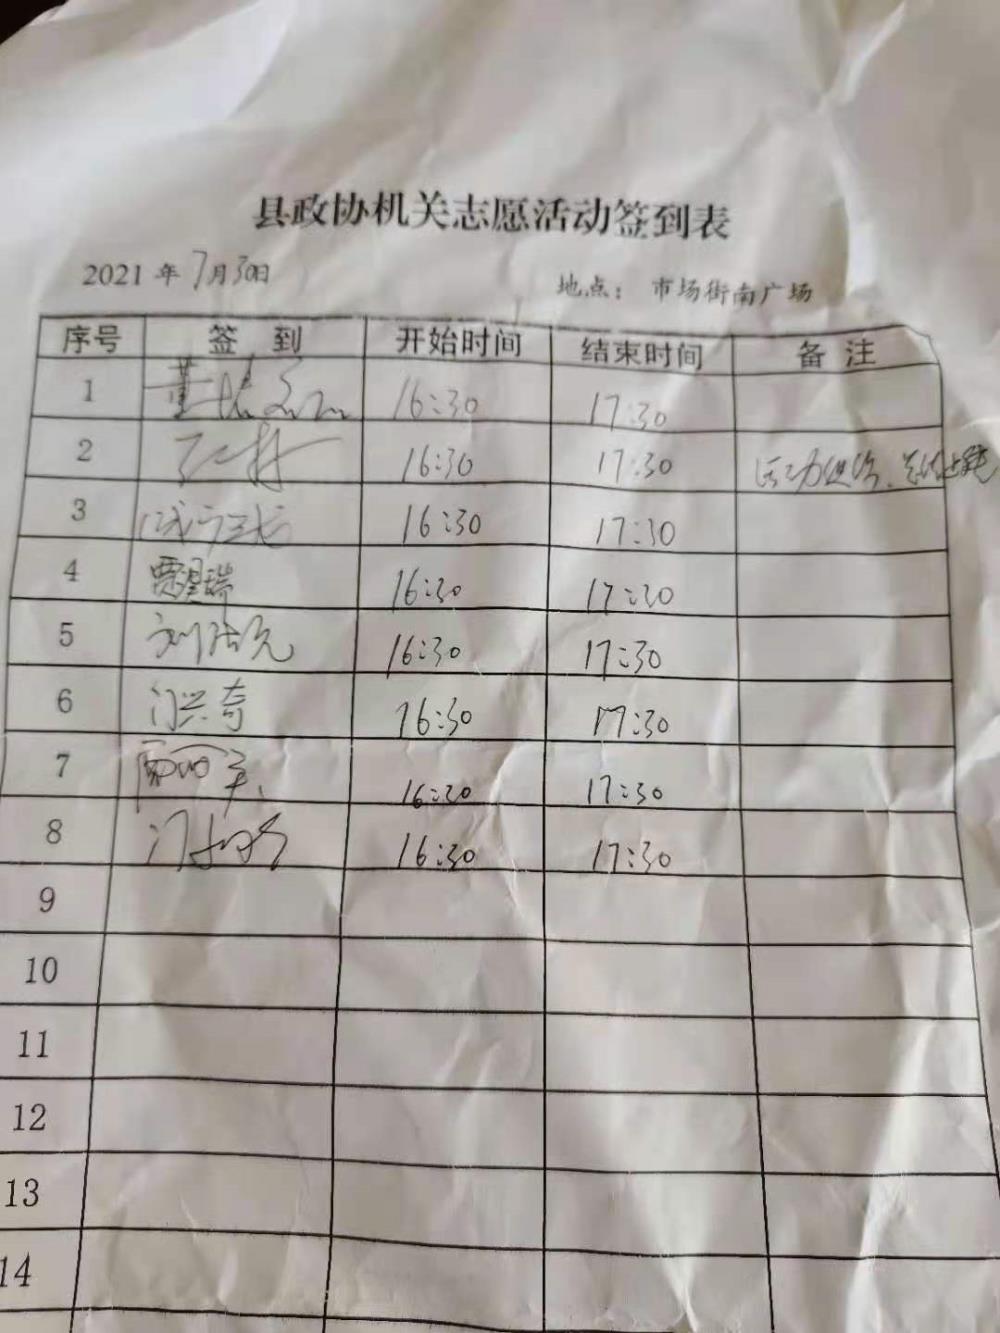 县政协机关志愿活动签到表
2021年7月30日 地点：市场街南广场
序号 签到 开始时间 结束时间 备注
1 16:30 17:30
2 16:30 17:30
3 16:30 17:30
4 贾星瑞 16:30 17:30
5 16:30 17:30
6 门兴奇 16:30 17:30
7 16:30 17:30
8 16:30 17:30
9
10
11
12
13
14